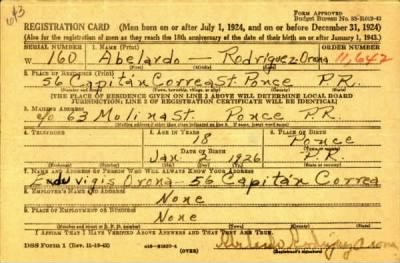 613
FORM APPROVED
Budget Bureau No. 33-R012-42
REGISTRATION CARD (Men born on or after July 1, 1924, and on or before December 31, 1924)
(Also for the registration of men as they reach the 18th anniversary of the date of their birth on or after January 1, 1943.)
SERIAL NUMBER 1. NAME (Print) ORDER NUMBER
W 160 Abelardo Rodriguez Orona 11,642
(First) (Middle) (Last)
2. PLACE OF RESIDENCE (Print)
56 Capitán Correa St. Ponce P.R.
(Number and street) (Town, township, village, or city) (County) (State)
[THE PLACE OF RESIDENCE GIVEN ON LINE 2 ABOVE WILL DETERMINE LOCAL BOARD
JURISDICTION; LINE 2 OF REGISTRATION CERTIFICATE WILL BE IDENTICAL]
3. MAILING ADDRESS
c/o 63 Molina St. Ponce P.R.
4. TELEPHONE 5. AGE IN YEARS 6. PLACE OF BIRTH
18 Ponce
DATE OF BIRTH
Jan. 2 1926 P.R.
7. NAME AND ADDRESS OF PERSON WHO WILL ALWAYS KNOW YOUR ADDRESS
Eduvigis Orona - 56 Capitán Correa
8. EMPLOYER'S NAME AND ADDRESS
None
9. PLACE OF EMPLOYMENT OR BUSINESS
None
I AFFIRM THAT I HAVE VERIFIED ABOVE ANSWERS AND THAT THEY ARE TRUE.
DSS Form 1 (Rev. 11-16-42) (OVER) Abelardo Rodriguez Orona